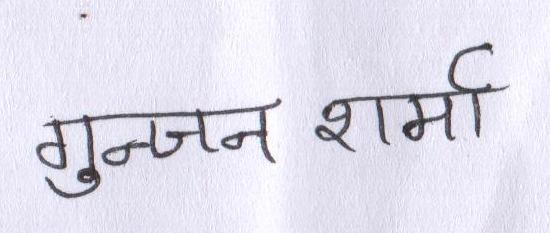 गुन्जन शर्मा